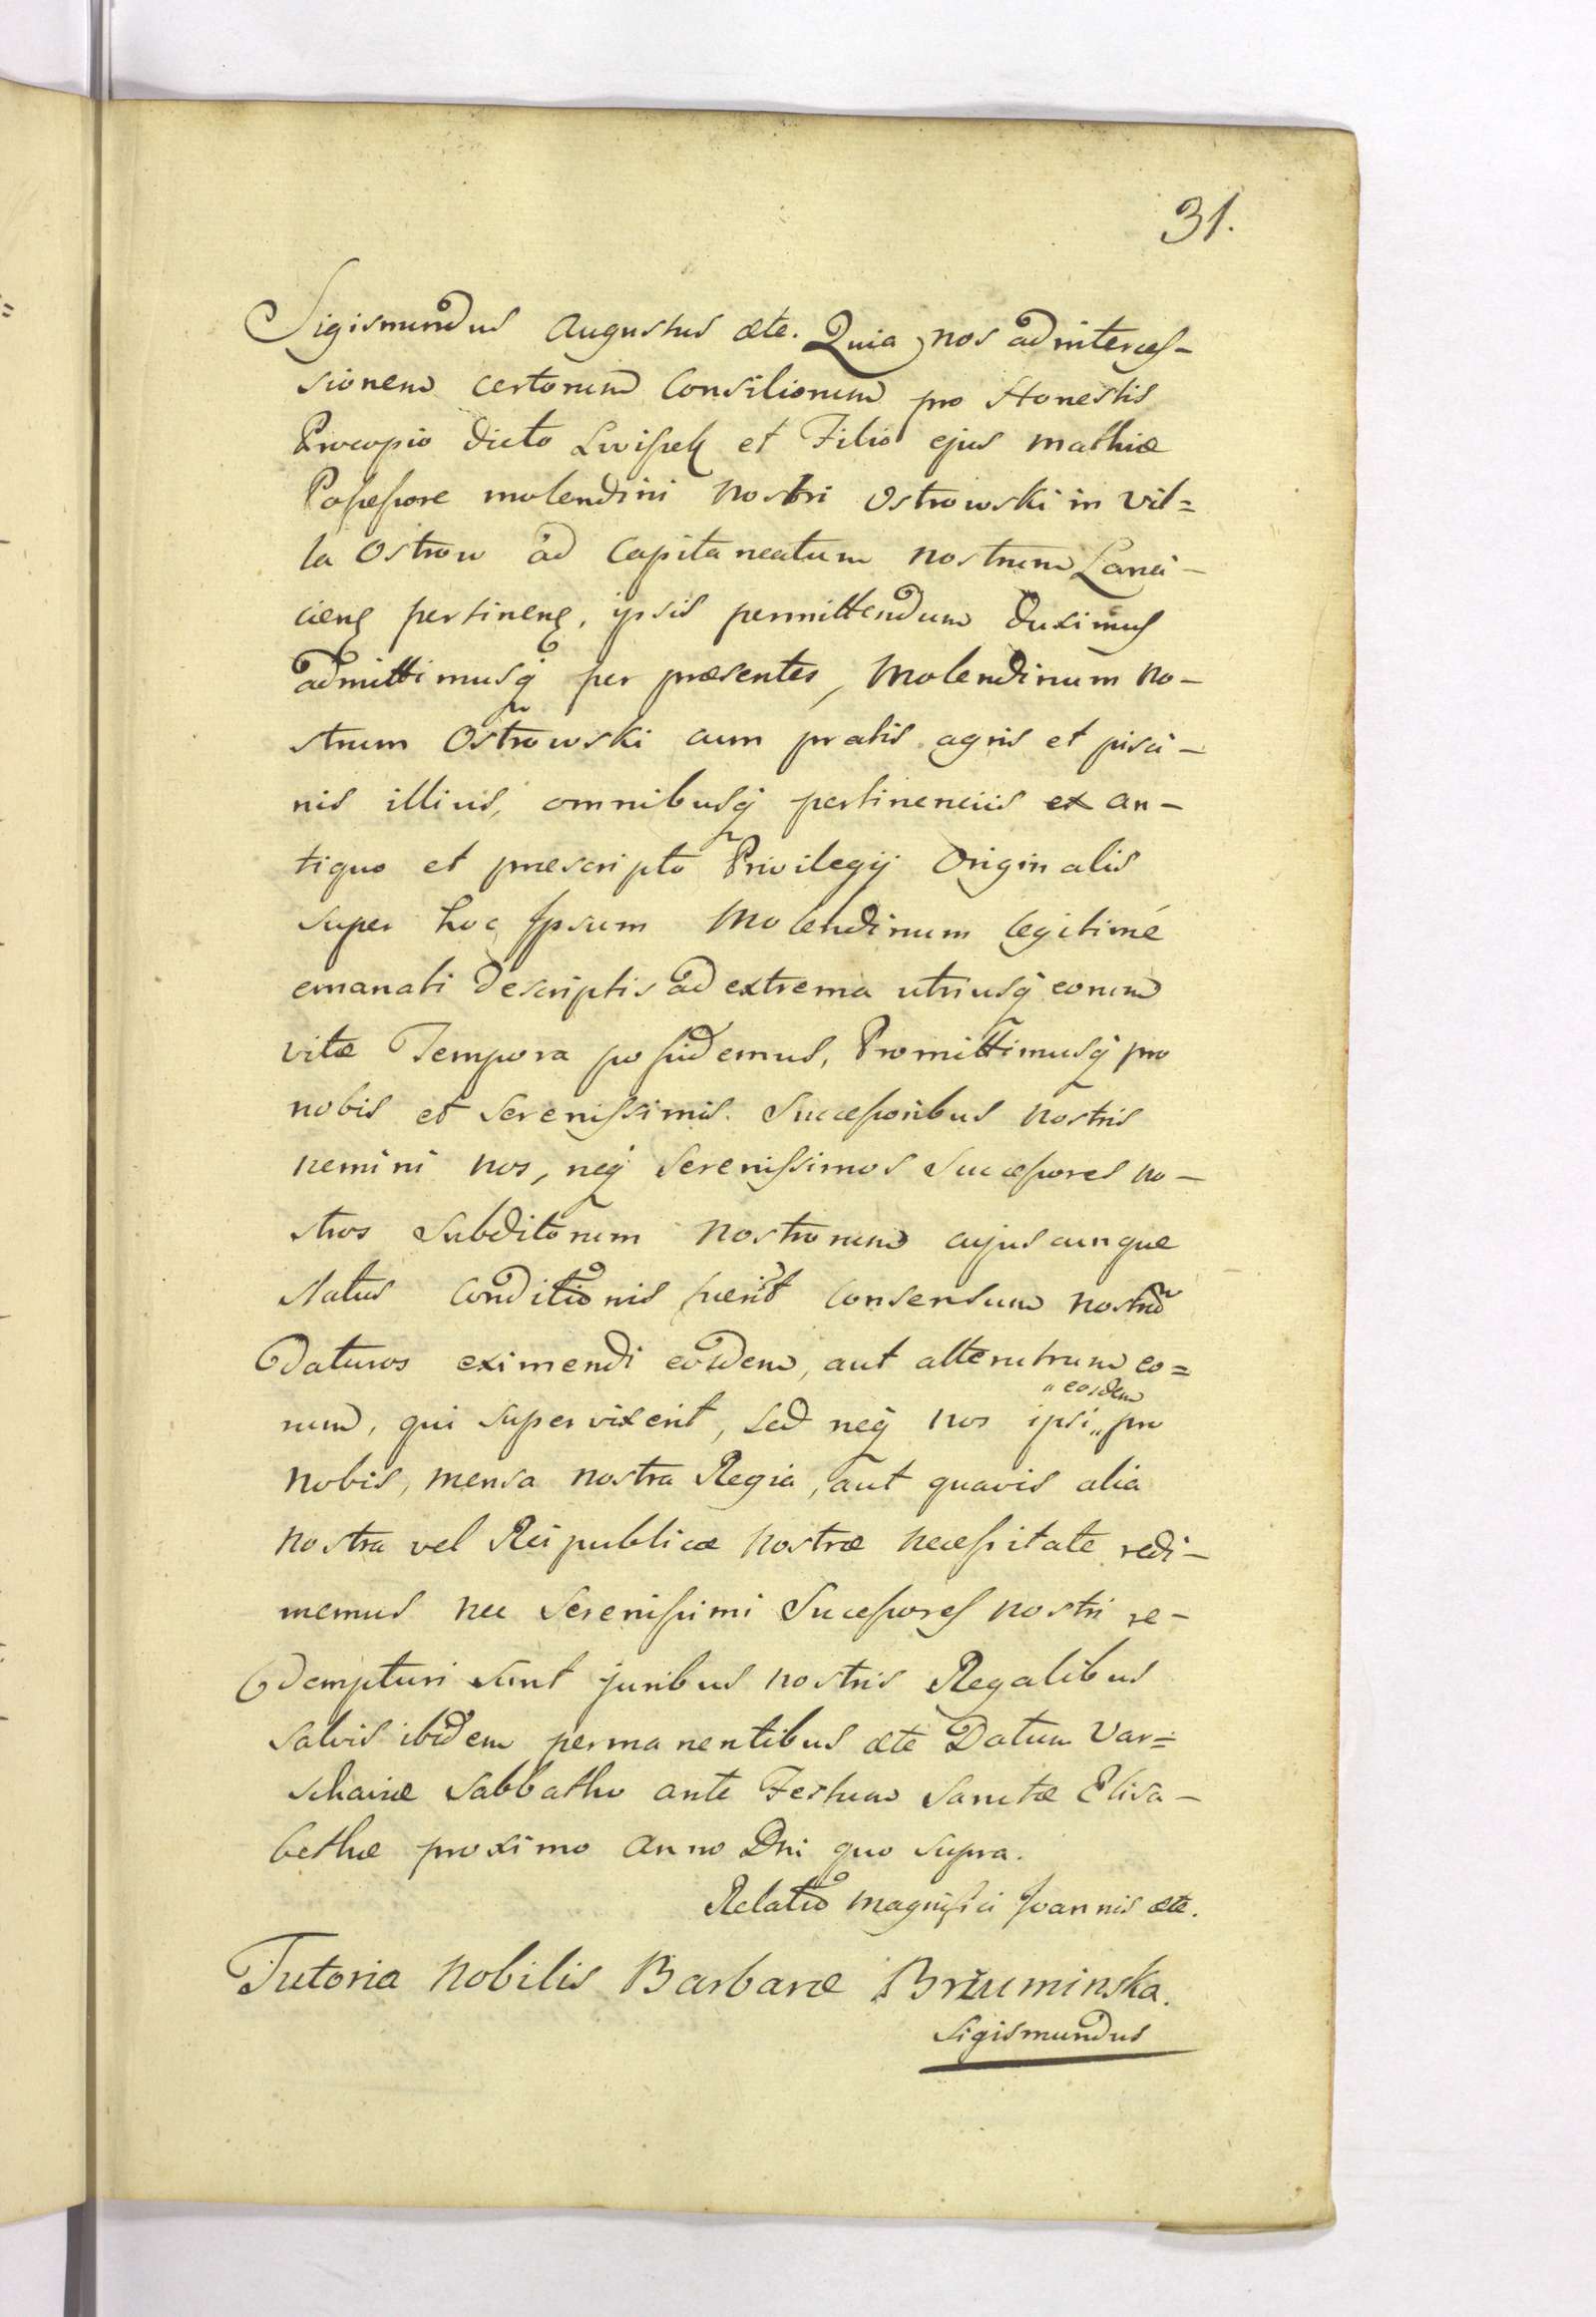 31.
Sigismundus Augustus ætc. Quia nos ad interces-
sionem certorum Consiliorum pro Honestis
Procopio dicto et Filio ejus Mathiæ
Possessore molendini Nostri Ostrowski in Vil=
la Ostrow ad Capitaneatum nostrum Lanci-
cieng pertineng, ipsis permittendum duximus
admittimusq per præsentes, Molendinum no-
strum Ostrowski cum pratis agris et pisci-
nis illius, omnibusq pertinenciis ex an-
tiquo et præscripto Privilegij Originalis
super hoc Ipsum Molendinum legitimé
emanati descriptis ad extrema utriusq eorum
vitæ Tempora possidemus, Promittimusq pro
nobis et Serenissimis Successoribus nostris
nemini nos, neq Serenissimos Successores no-
stros Subditorum Nostrorum cujuscunque
Status Conditionis fuerit Consensum nostrum
daturos eximendi eosdem, aut alterutrum eo=
„eosdem
rum, qui supervixerit, sed neq nos ipsi„ pro
nobis, mensa nostra Regia, aut quavis alia
nostra vel Reipublicæ Nostræ necessitate redi-
memus nec Serenissimi Successores nostri re-
dempturi sunt juribus nostris Regalibus
salvis ibidem permanentibus ætc Datum Var=
schaviæ Sabbatho ante Festum Sanctæ Elisa-
bethæ proximo Anno Dni quo supra.
Relatio Magnifici Joannis ætc.
Tutoria Nobilis Barbaræ Bržuminska.
Sigismundus